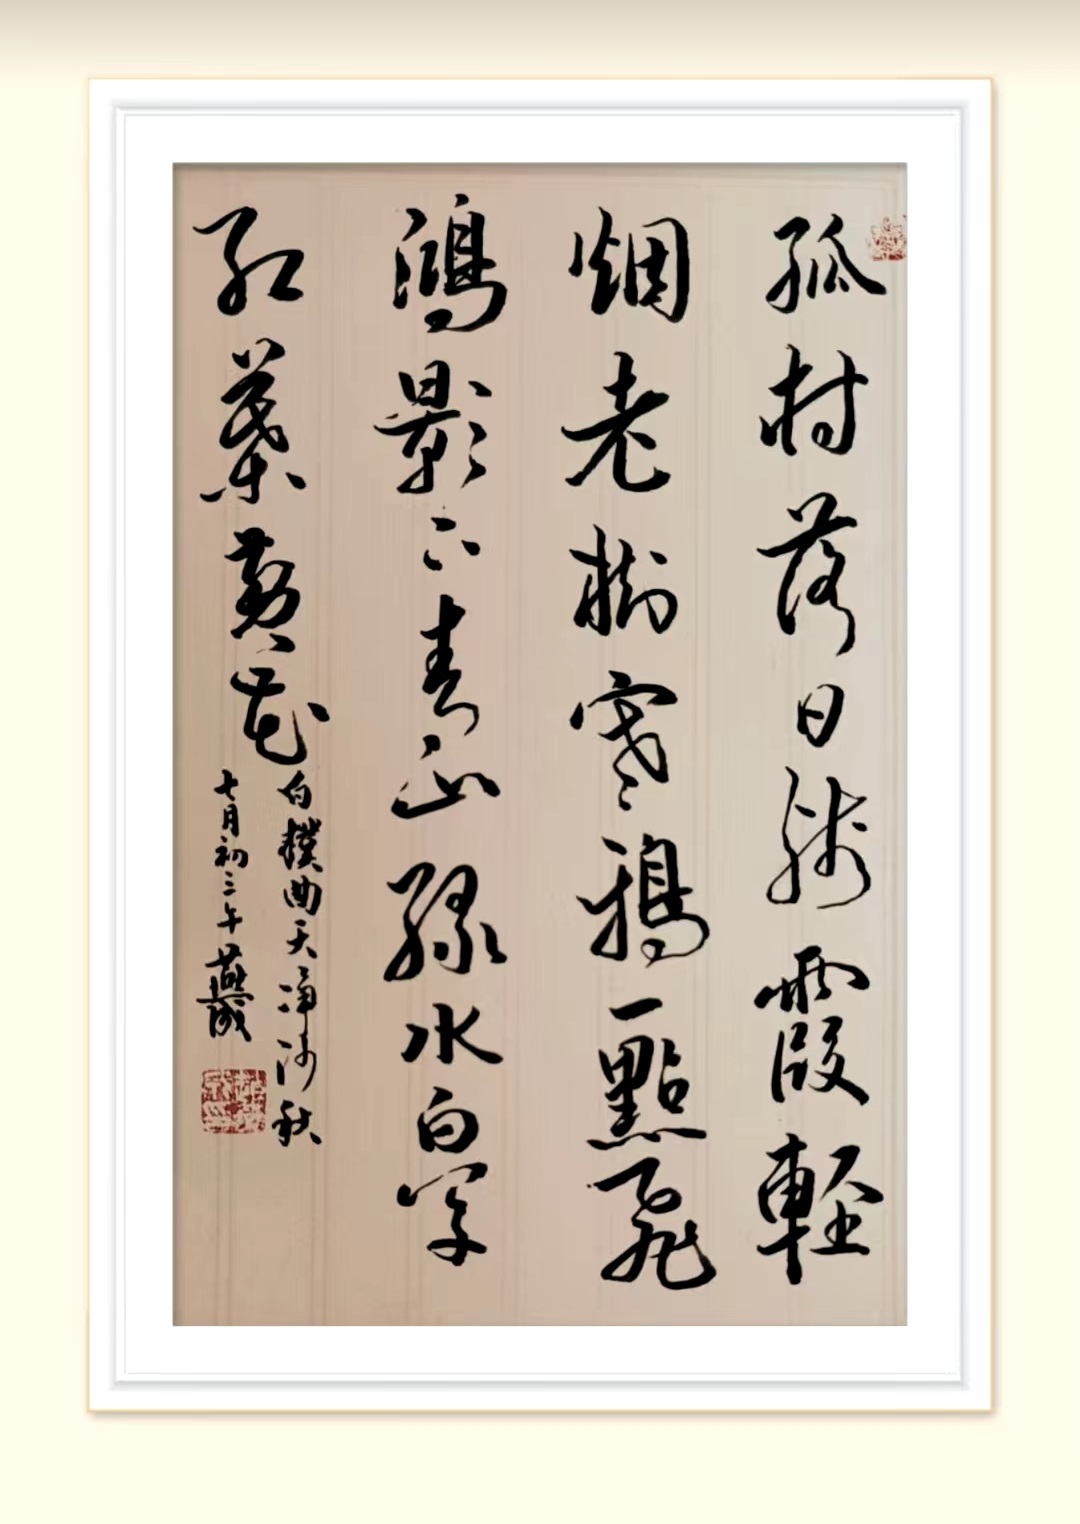 孤村落日残霞輕
烟老樹寒鴉一點飛
鴻影下青山綠水白草
紅葉黃花
白樸曲天净沙秋
七月初三午燕